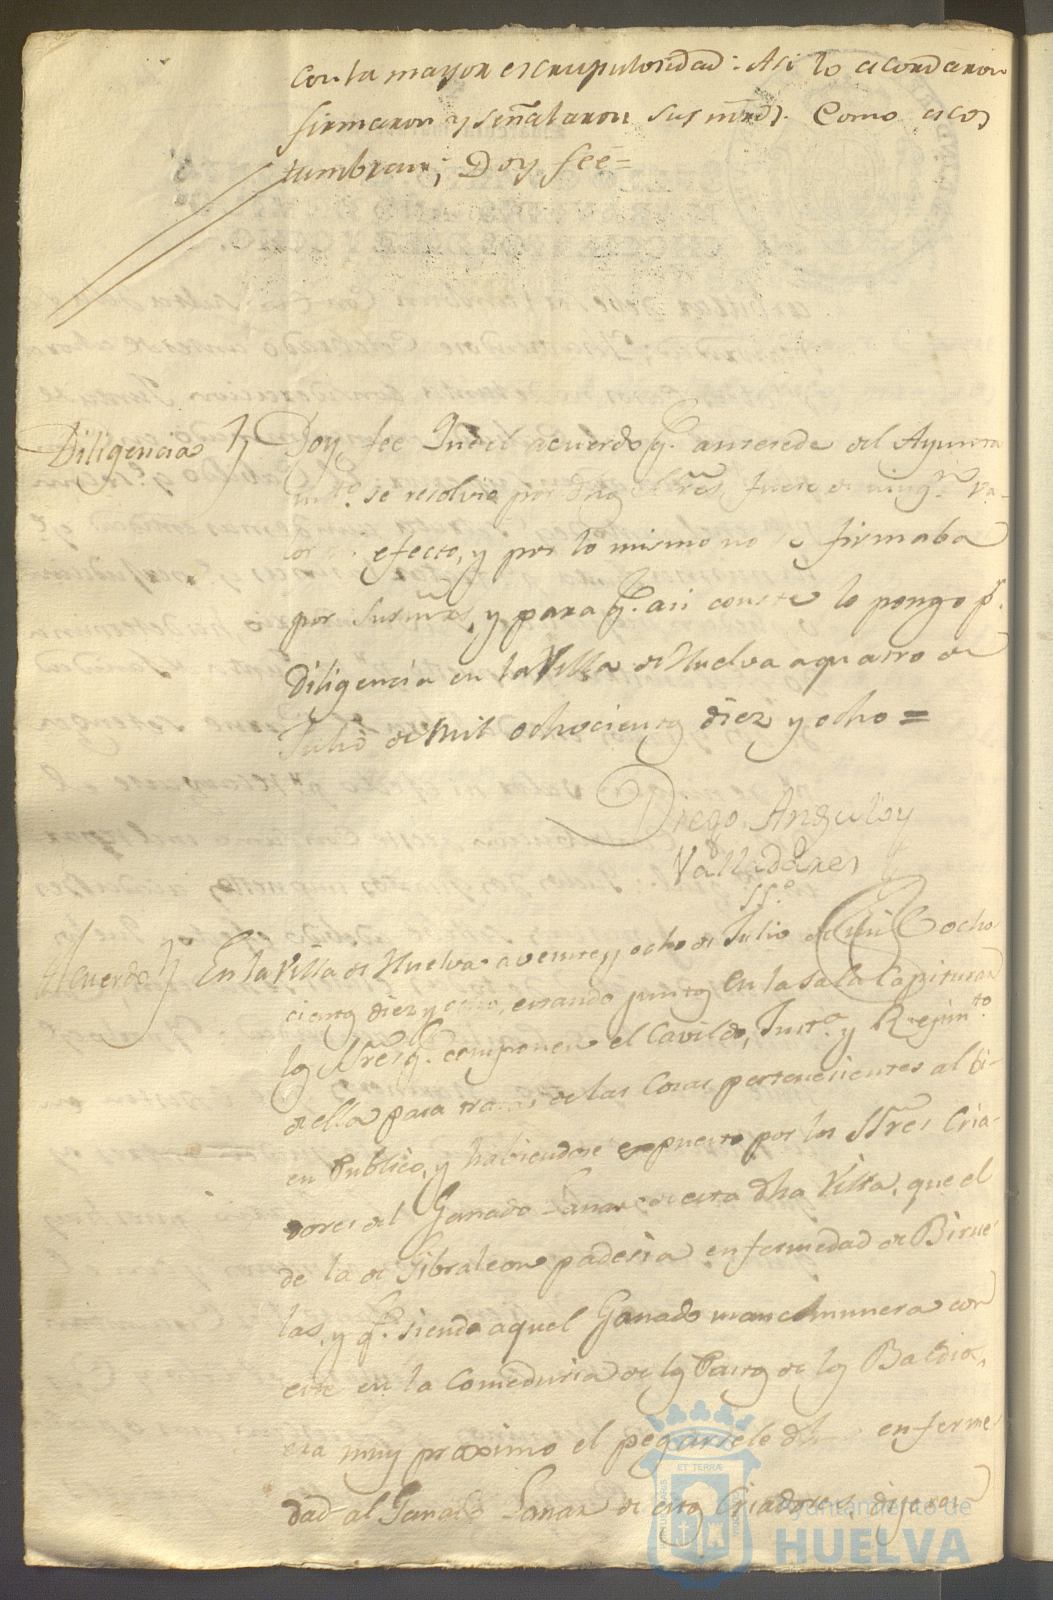 con la mayor escrupulosidad: Asi lo acordaron
firmaron y señalaron sus mrds. Como acos
tumbran; Doy feé=
Diligencia Doy fee Qué el acuerdo q.e antesede del Ayunta
mto. se resolvio por dhos SSres, fuese de ning.n va-
lor efecto, y por lo mismo no se firmaba
por sus mrds, y para q.e asi conste lo pongo pr.
Diligencia en la Villa de Huelva a quatro de
Julio de mil ochocientos diez y ocho =
Diego Angulo y
Valladares
SS.o
Acuerdo En la Villa de Huelva a veinte y ocho de Julio de mil ocho
cientos diez y ocho, estando juntos en la sala Capitular
los SSres q.e componen el Cavildo, Just.a y Rejim.to
de ella para tratar de las Cosas pertenesientes al bi-
en Publico, y habiendose expuesto por los SSres Cria-
dores del Ganado Lanar de esta dha Villa, que el
de la de Gibraleon padesia enfermedad de Birue-
las, y q.e siendo aquel Ganado mancomunera con
este en la Comeduria de los Pastos de los Baldios,
era muy proximo el pegarsele enferme
dad al Ganado Lanar de estos Criadores, dijeron
ET TERRÆ
Ayuntamiento de
HUELVA